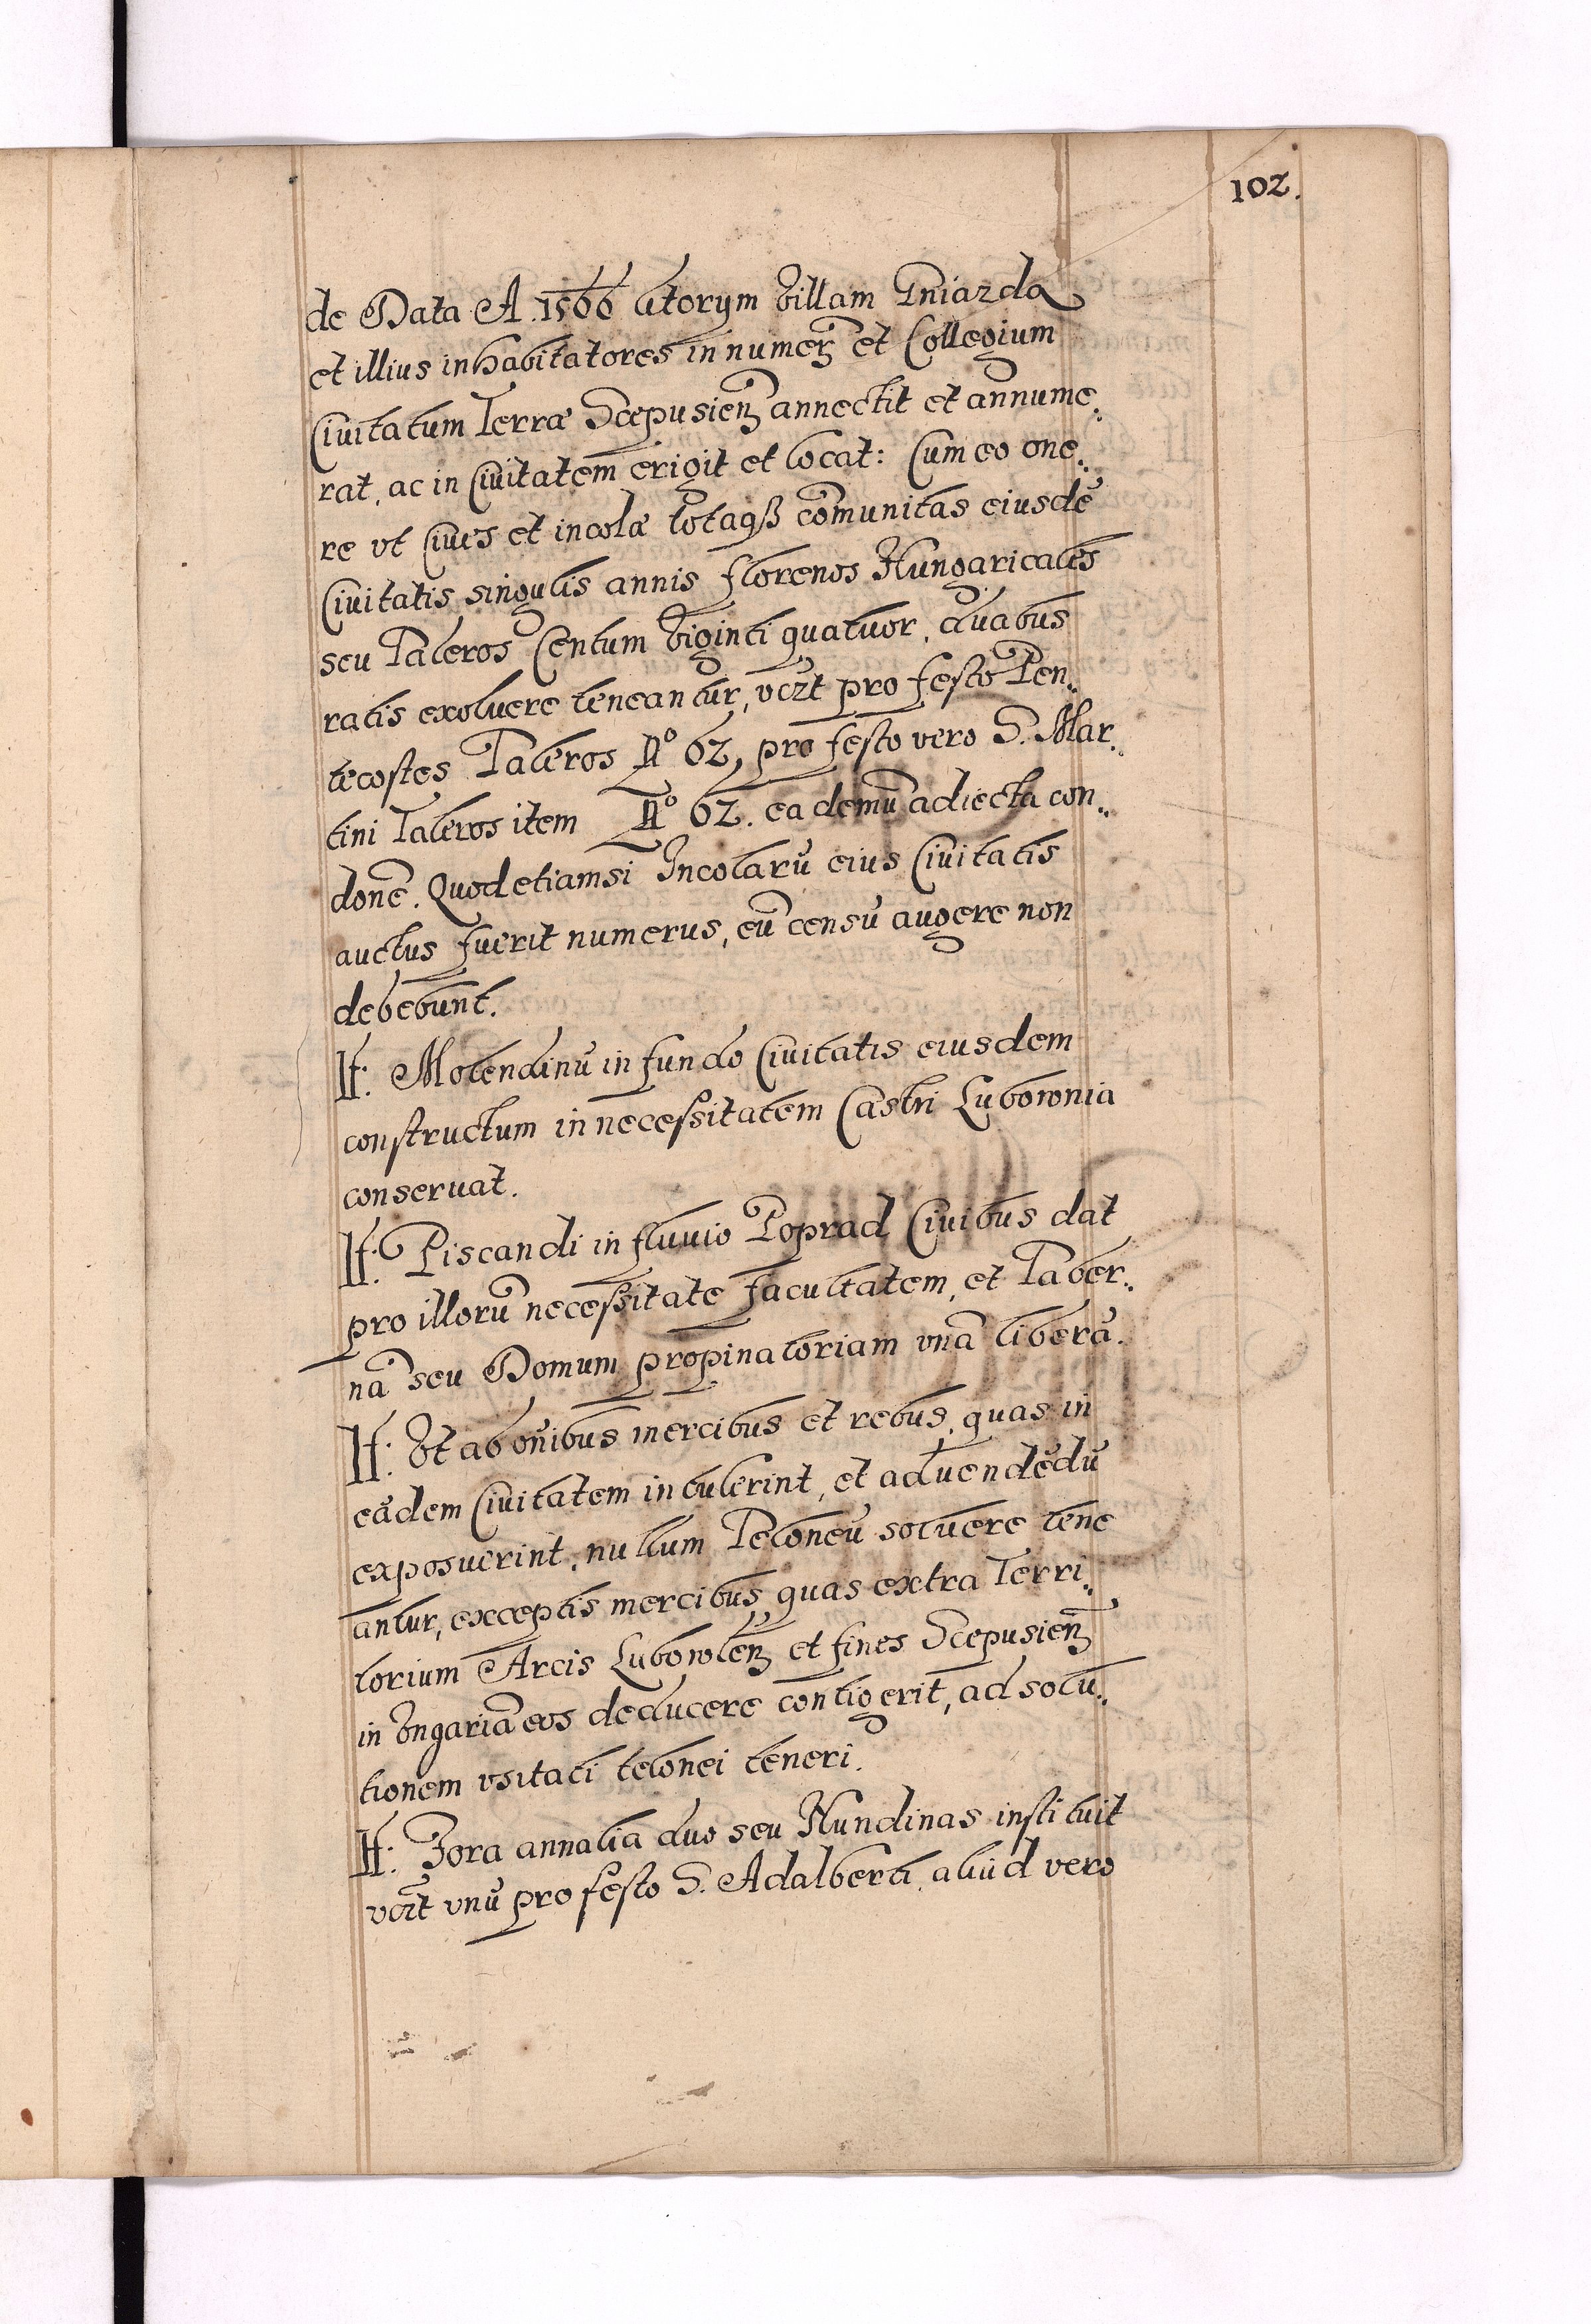 102.
de Data A. 1566 litorym Villam Gniazda
et illius inhabitatores in numerz et Collegium
Civitatum Terræ Scepusienz annectit et annume„
rat, ac in Civitatem erigit et locat: Cum eo one„
re vt Cives et incolæ totaqz com̃unitas eiusdẽ
Civitatis singulis annis florenos Hungaricales
seu Taleros Centum Viginti quatuor, duabus
ratis exoluere teneantur, vczt pro festo Pen„
tecostes Taleros No 62, pro festo vero S. Mar„
tini Taleros item No 62. ea demũ adiecta con„
donẽ. Quod etiamsi Incolarũ eius Civitatis
auctus fuerit numerus, eũ censũ augere non
debebunt.
It: Molendinũ in fundo Civitatis eiusdem
constructum in necessitatem Castri Lubownia
conservat.
It: Piscandi in fluvio Poprad Civibus dat
pro illorũ necessitate facultatem, et Taber„
nã seu Domum propinatoriam vnã liberã.
It: Vt ab oĩbus mercibus et rebus, quas in
eãdem Civitatem intulerint, et ad vendẽdũ
exposuerint, nullum Teloneũ soluere tene
antur, exceptis mercibus quas extra Terri„
torium Arcis Lubowlenz et fines Scepusienz
in Vngariã eos deducere contigerit, ad solu„
tionem vsitati telonei teneri.
It: Fora annalia duo seu Nundinas instituit
vczt vnũ pro festo S. Adalberti, aliud vero